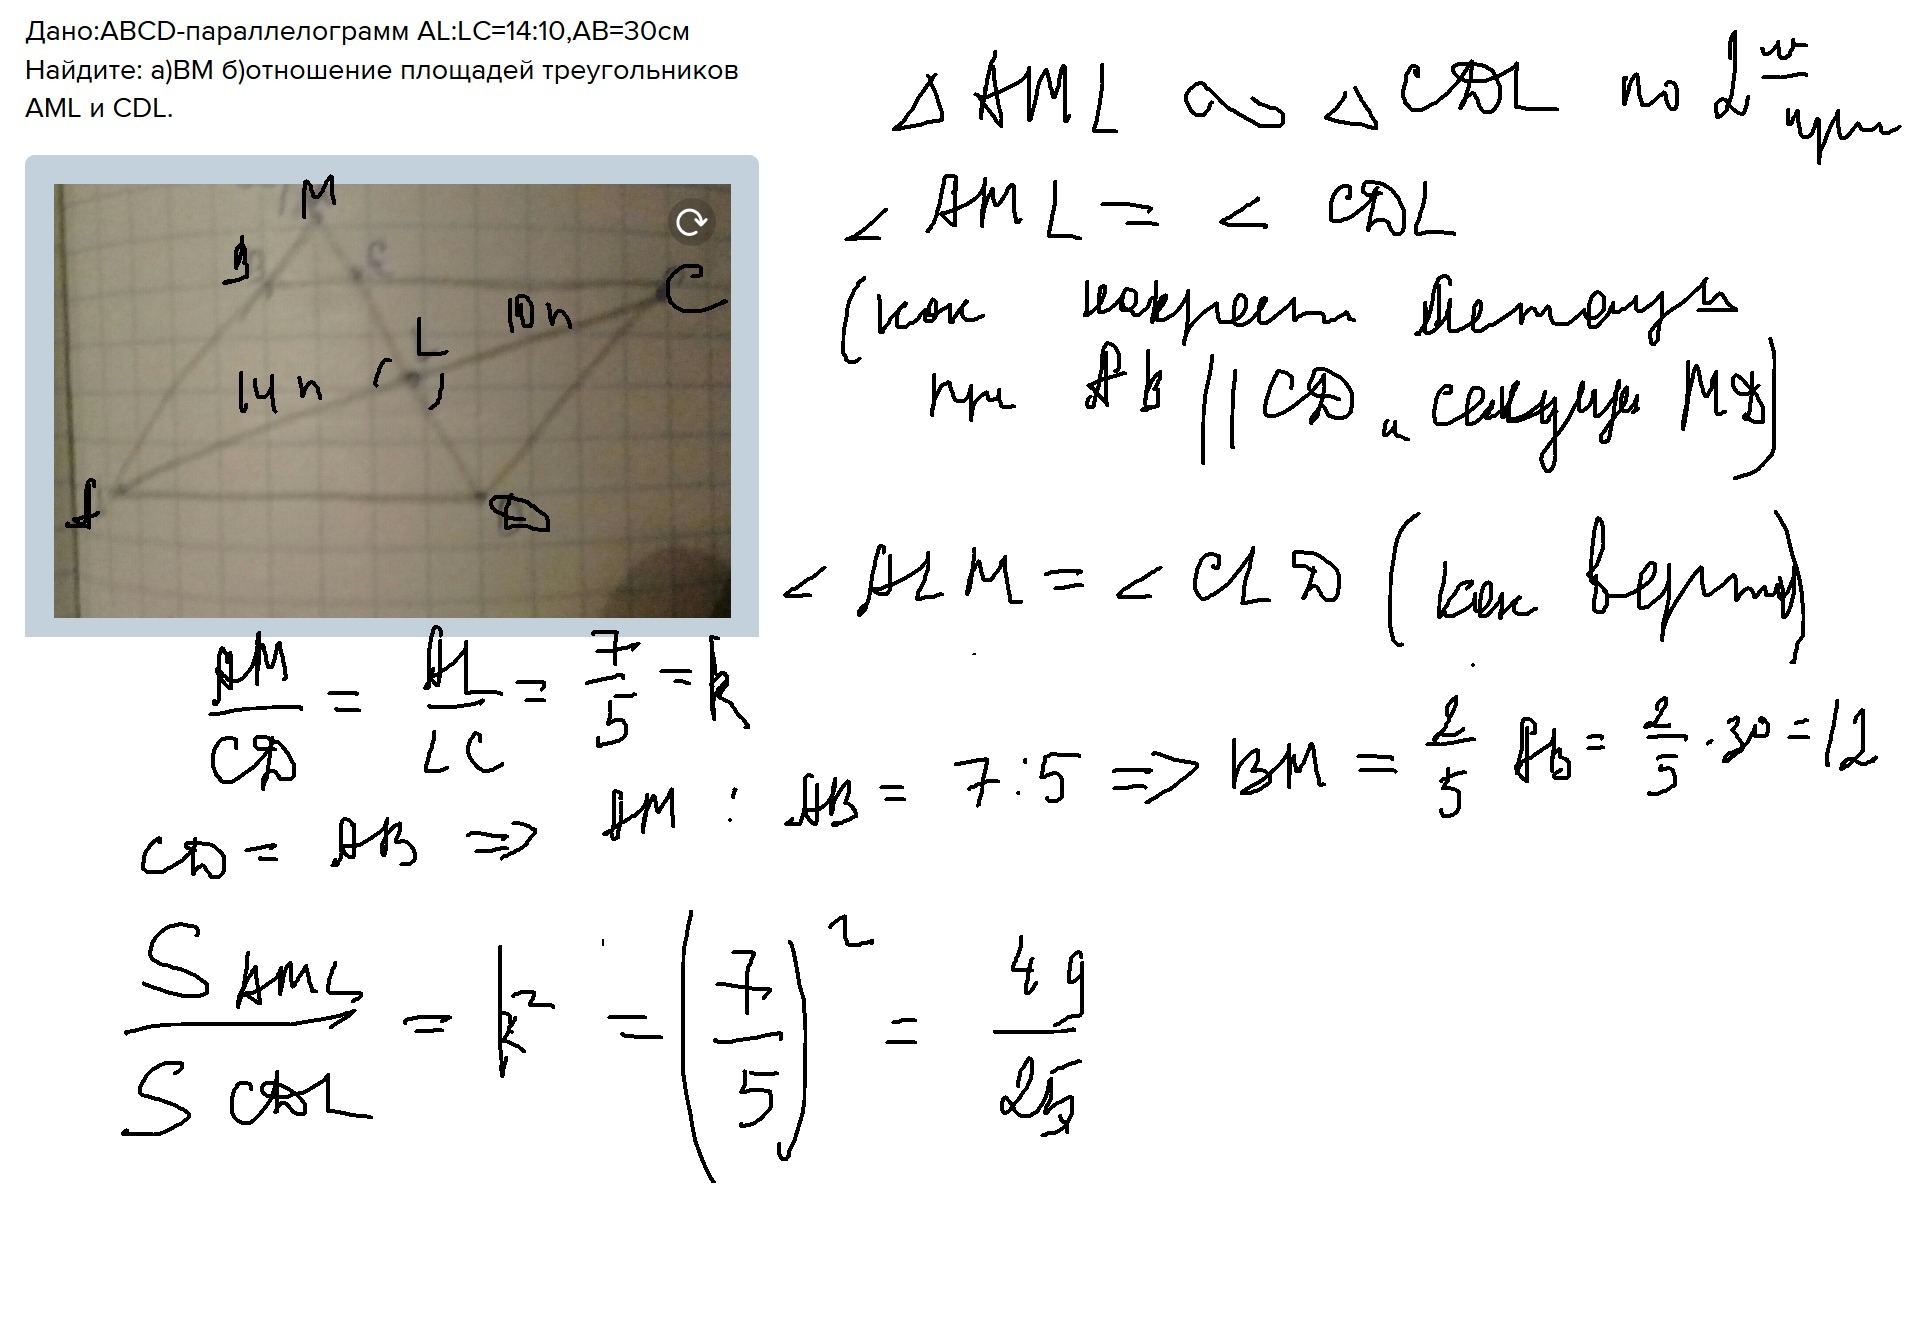 Дано:ABCD-параллелограмм AL:LC=14:10,AB=30см
Найдите: а)BM б)отношение площадей треугольников
AML и CDL.
M
B
C
L
10n
14n
A
D
Δ AML ∾ Δ CDL по 2
∠ AML = ∠ CDL
(как накрест
при AB || CD и секущей MD)
∠ ALM = ∠ CLD (как вертик)
AM/CD = AL/LC = 7/5 = k
CD = AB => AM : AB = 7:5 => BM = 2/5 AB = 2/5 · 30 = 12
S AML / S CDL = k² = (7/5)² = 49/25